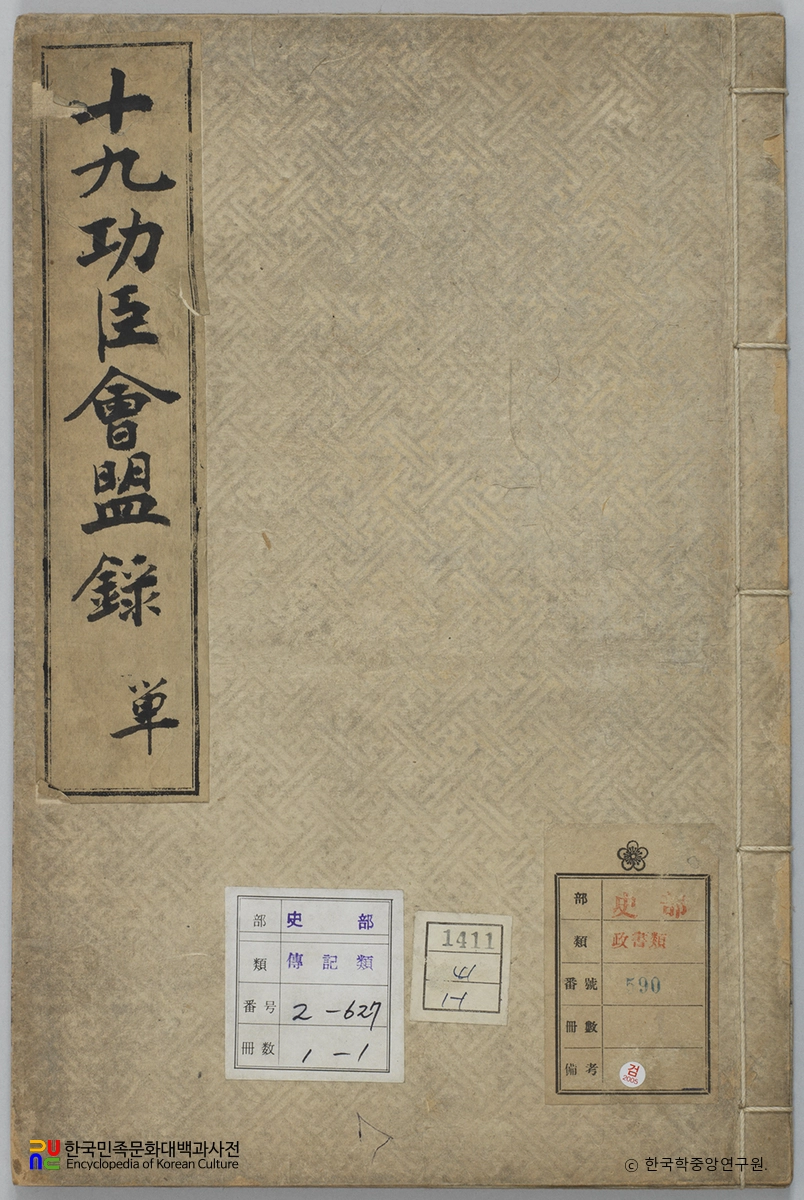 十九功臣會盟錄 単
部 史 部
類 傳記類
番号 2-627
冊数 1-1
1411
1-1
部 史 部
類 政書類
番號 590
冊數
備考
검
2005
한국민족문화대백과사전
Encyclopedia of Korean Culture
© 한국학중앙연구원